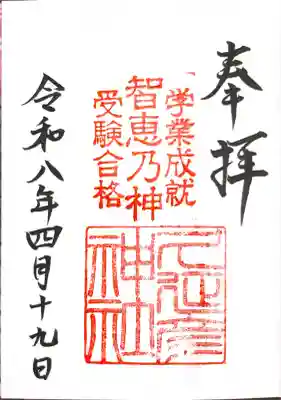 奉拝
学業成就
智恵乃神
受験合格
神社
令和八年四月十九日